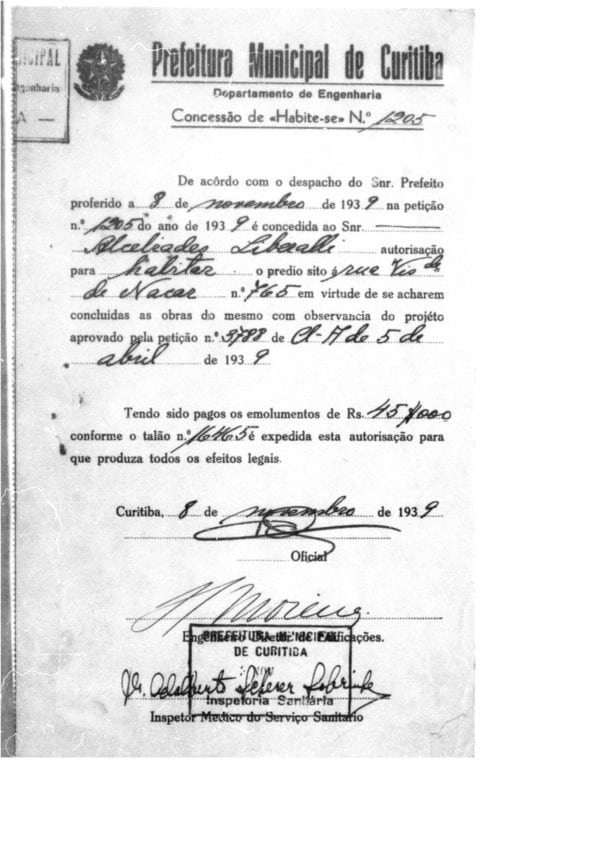 ICIPAL
ngenharia
A —
Prefeitura Municipal de Curitiba
Departamento de Engenharia
Concessão de «Habite-se» N.º 1205
De acôrdo com o despacho do Snr. Prefeito
proferido a 8 de novembro de 1939 na petição
n.º 1205 do ano de 1939 é concedida ao Snr.
Alcebiades Liberalli autorisação
para habitar o predio sito á rua Vis de
de Nacar n.º 765 em virtude de se acharem
concluidas as obras do mesmo com observancia do projéto
aprovado pela petição n.º 3788 de Cl-M de 5 de
abril de 1939
Tendo sido pagos os emolumentos de Rs. 45$000
conforme o talão n.º é expedida esta autorisação para
que produza todos os efeitos legais.
Curitiba, 8 de novembro de 1939
Oficial
Moreno
Engenheiro Diretor de Edificações.
PREFEITURA MUNICIPAL
DE CURITIBA
NOV
Dr. Adalberto Scherer Sobrinho
Inspetoria Sanitária
Inspetor Medico do Serviço Sanitario